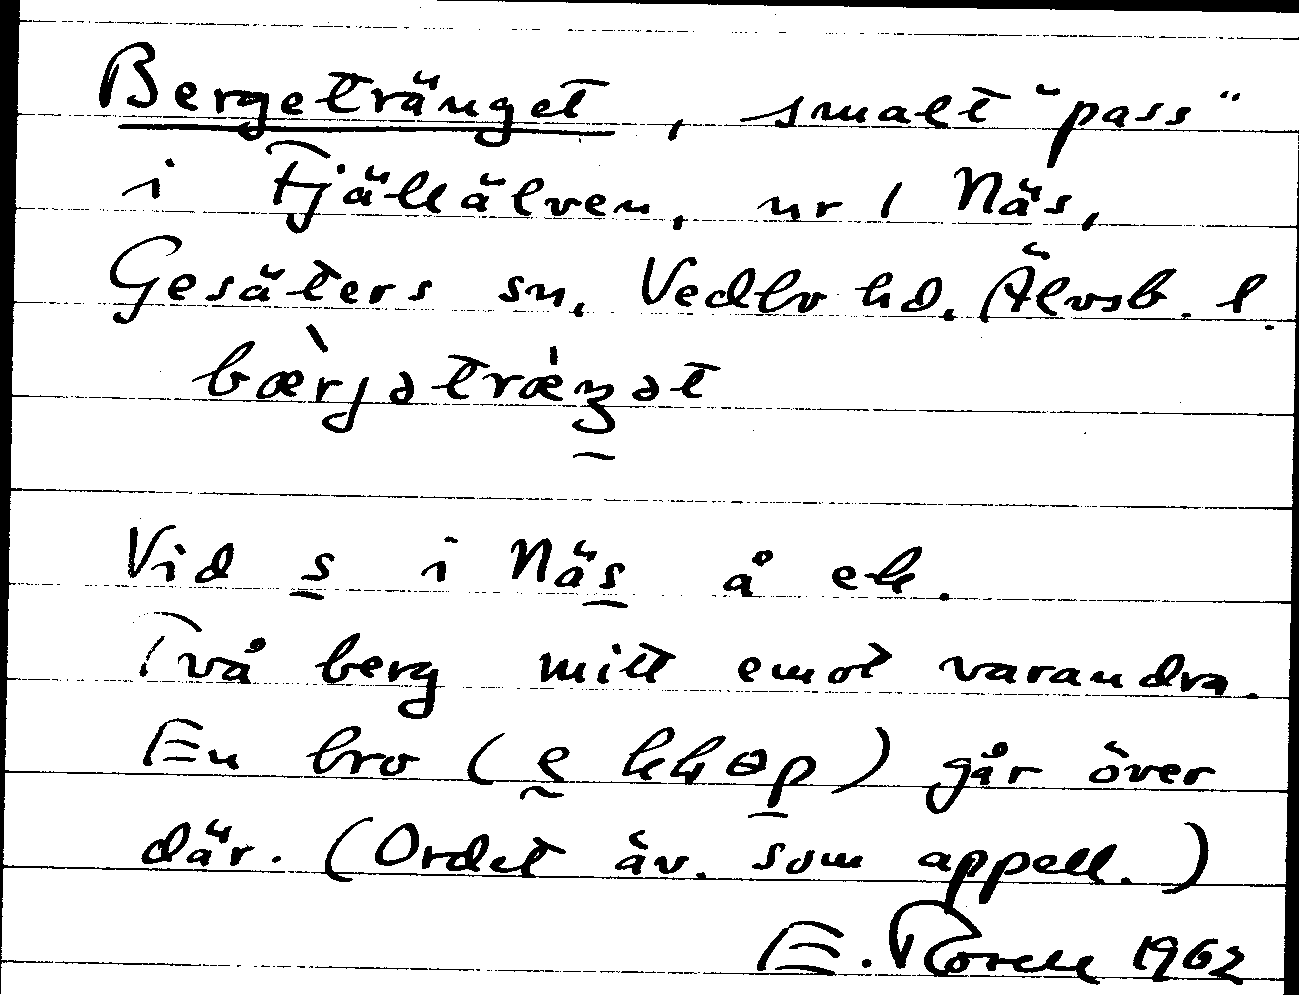 Bergetränget, smalt "pass"
i Fjällälven, nr 1 Näs,
Gesäters sn, Vedbo hd, Älvsb. l.
bær̀jətræ̍ŋət
Vid s i Näs å ek.
Två berg mitt emot varandra.
En bro ( går över
där. (Ordet äv. som appell.)
E. 1962